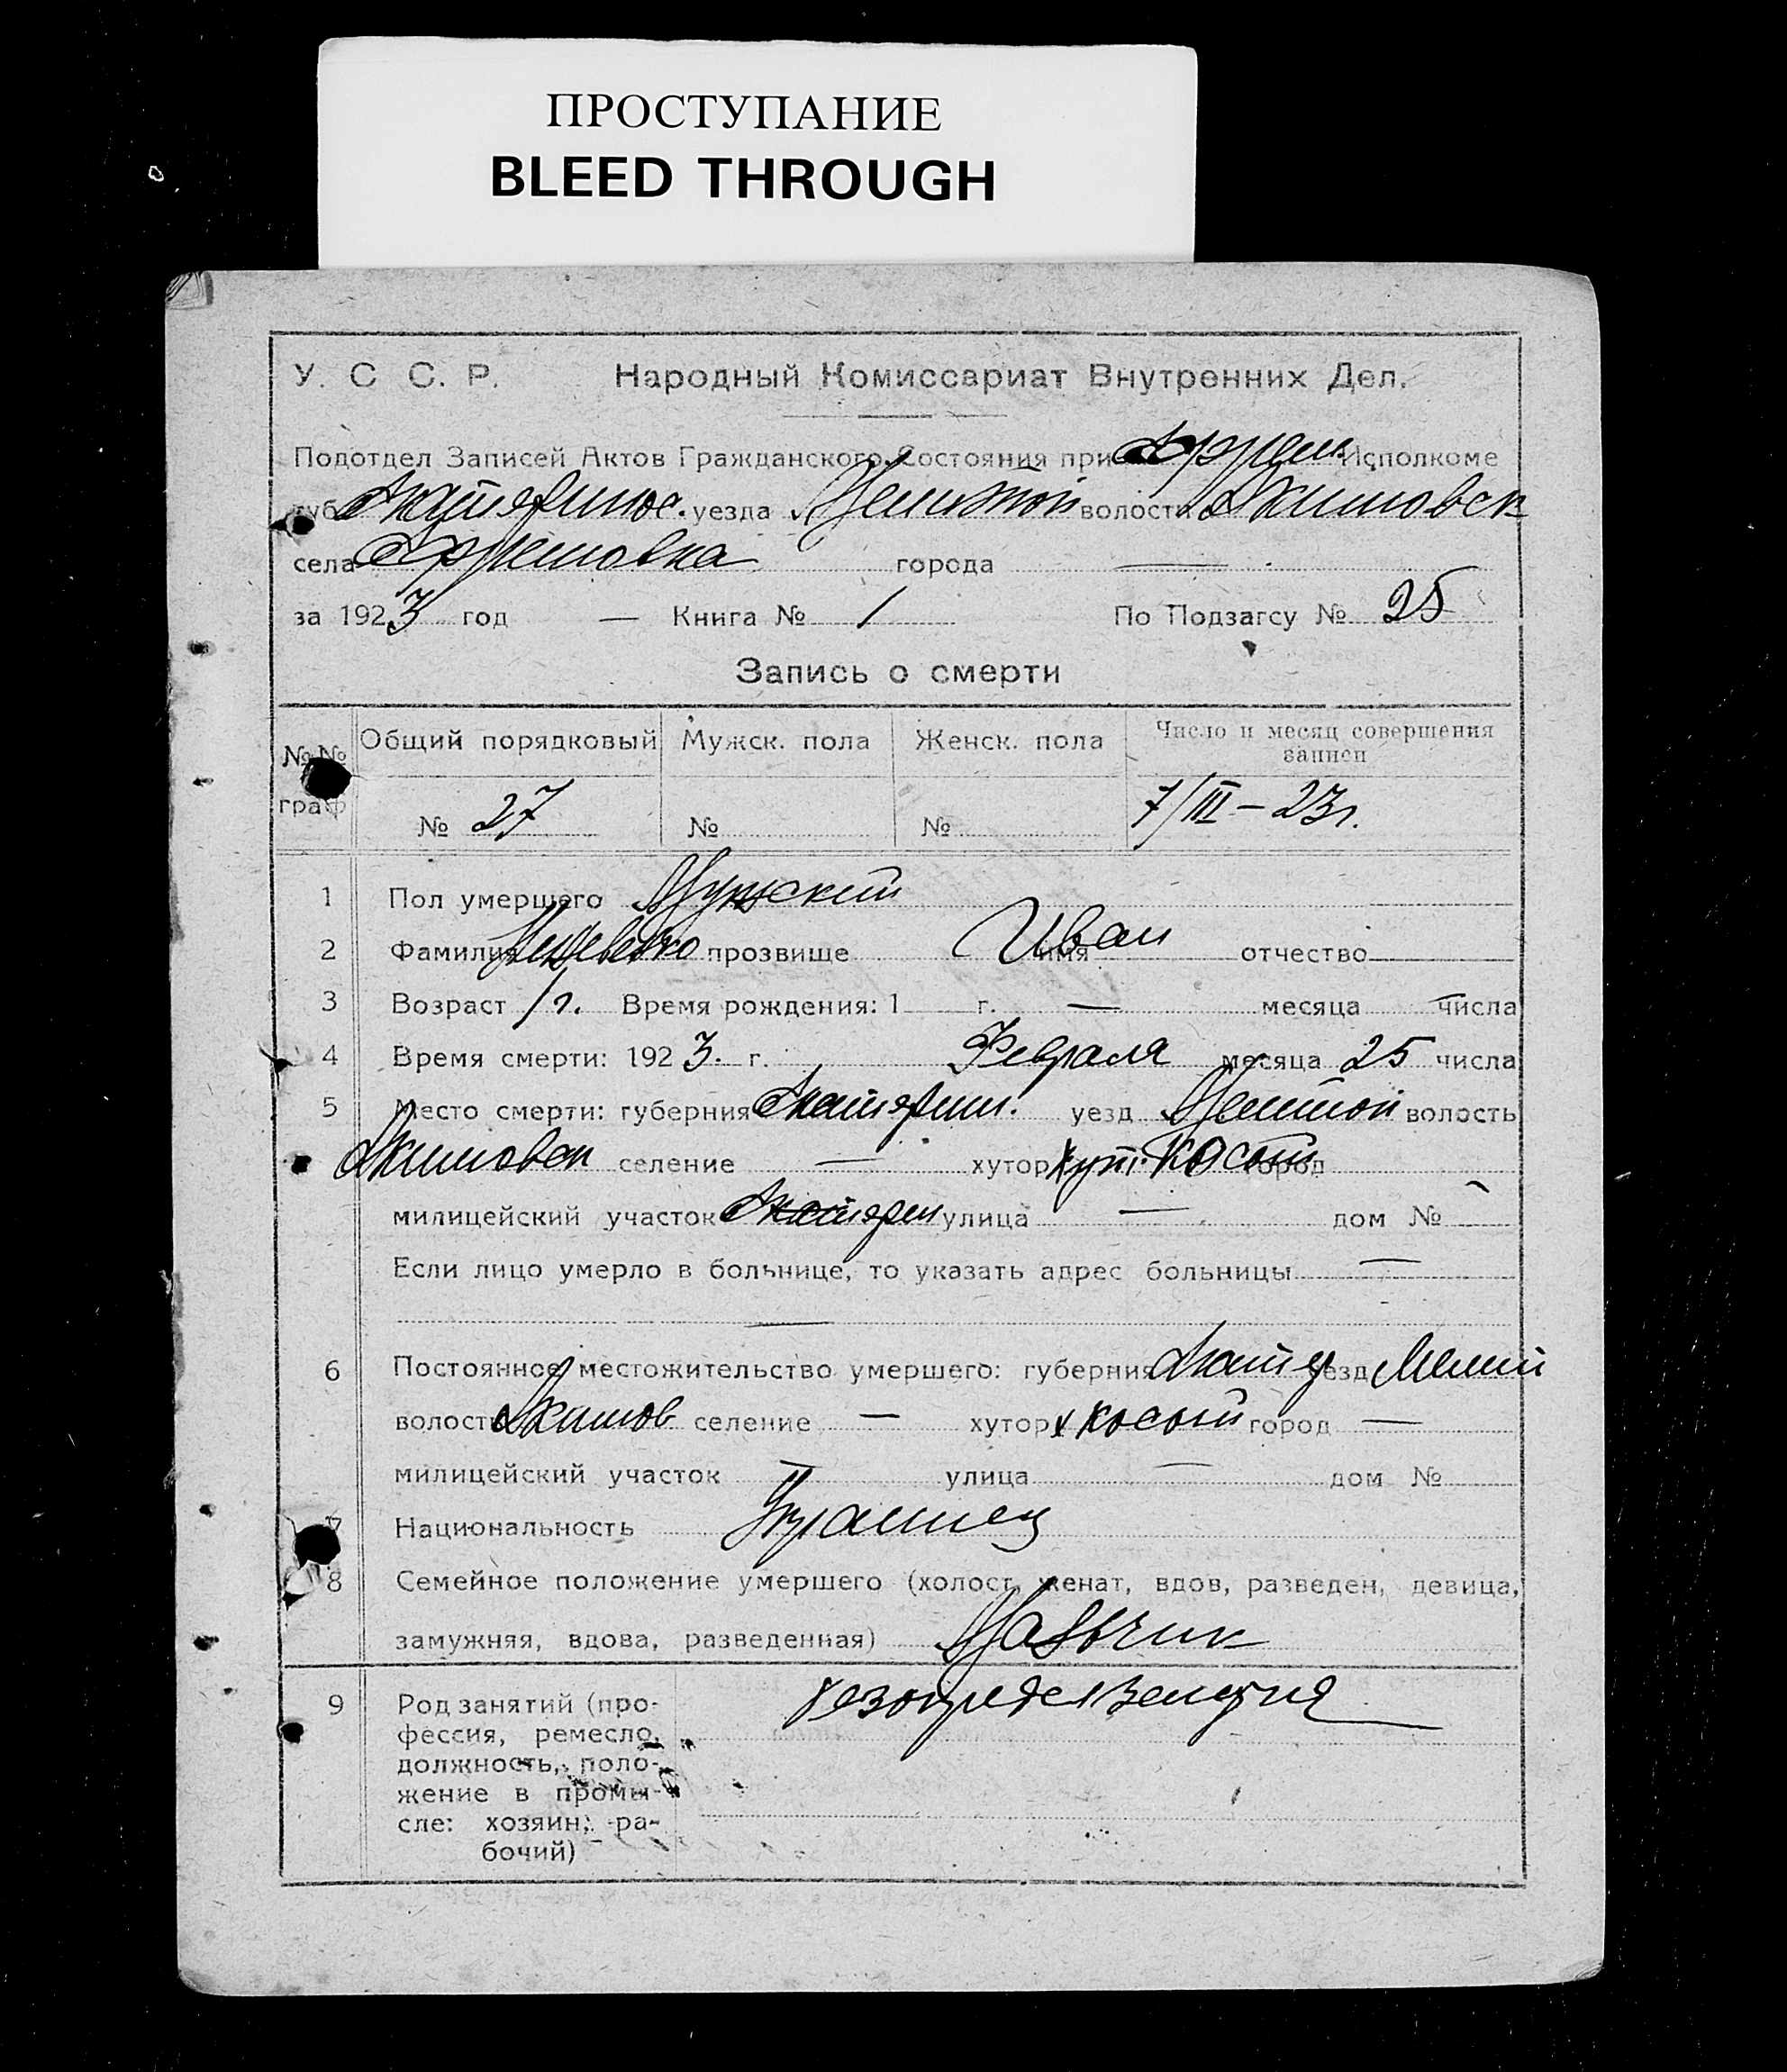 ПРОСТУПАНИЕ
BLEED THROUGH
У. С С. Р. Народный Комиссариат Внутренних Дел.
Подотдел Записей Актов Гражданского Состояния при Исполкоме
губ. уезда волости Акимовск
села города —
за 1923 год — Книга № 1 По Подзагсу № 25
Запись о смерти
№№ граф Общий порядковый Мужск. пола Женск. пола Число и месяц совершения записи
№ 27 № № 7/III – 23 г.
1 Пол умершего Мужский
2 Фамилия прозвище имя Иван отчество
3 Возраст 1 г. Время рождения: 1 г. — месяца — числа
4 Время смерти: 1923. г. Февраля месяца 25 числа
5 Место смерти: губерния уезд волость
Акимовск селение — хутор хут. Косый город
милицейский участок улица — дом № —
Если лицо умерло в больнице, то указать адрес больницы —
—
6 Постоянное местожительство умершего: губерния уезд Мелит
волость Акимов селение — хутор х Косый город —
милицейский участок — улица — дом №
7 Национальность Украинец
8 Семейное положение умершего (холост, женат, вдов, разведен, девица,
замужняя, вдова, разведенная) Мальчик
9 Род занятий (про-
фессия, ремесло,
должность, поло-
жение в промы-
сле: хозяин, ра-
бочий)